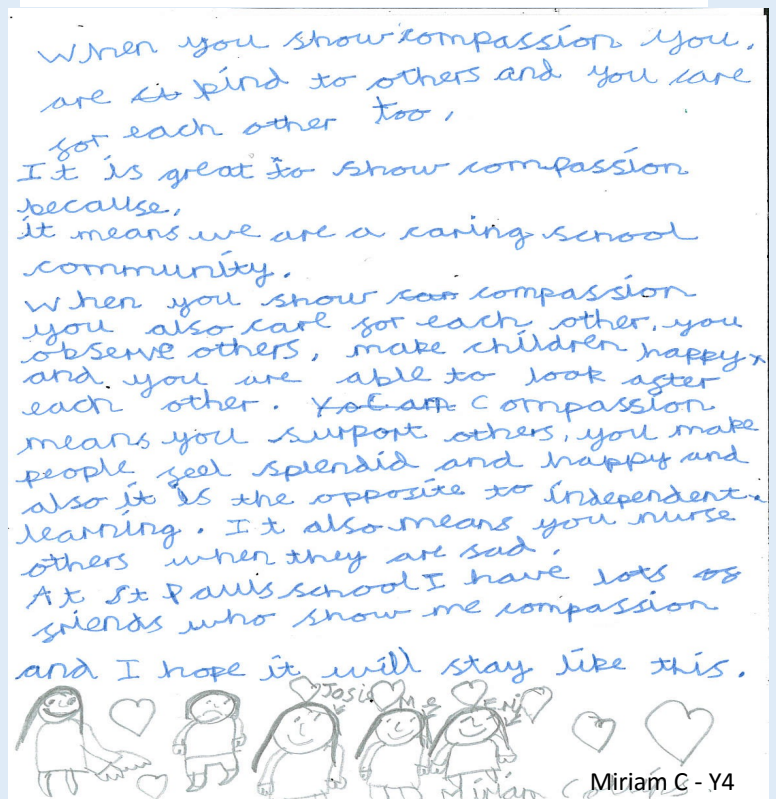 When you show compassion you,
are kind to others and you care
for each other too,
It is great to show compassion
because,
it means we are a caring school
community.
When you show compassion
you also care for each other, you
observe others, make children happy,
and you are able to look after
each other. Compassion
means you surport others, you make
people feel splendid and happy and
also it is the opposite to independent.
learning. It also means you nurse
others when they are sad.
At St Pauls school I have lots of
friends who show me compassion
and I hope it will stay like this.
Josie Me
Miriam C - Y4